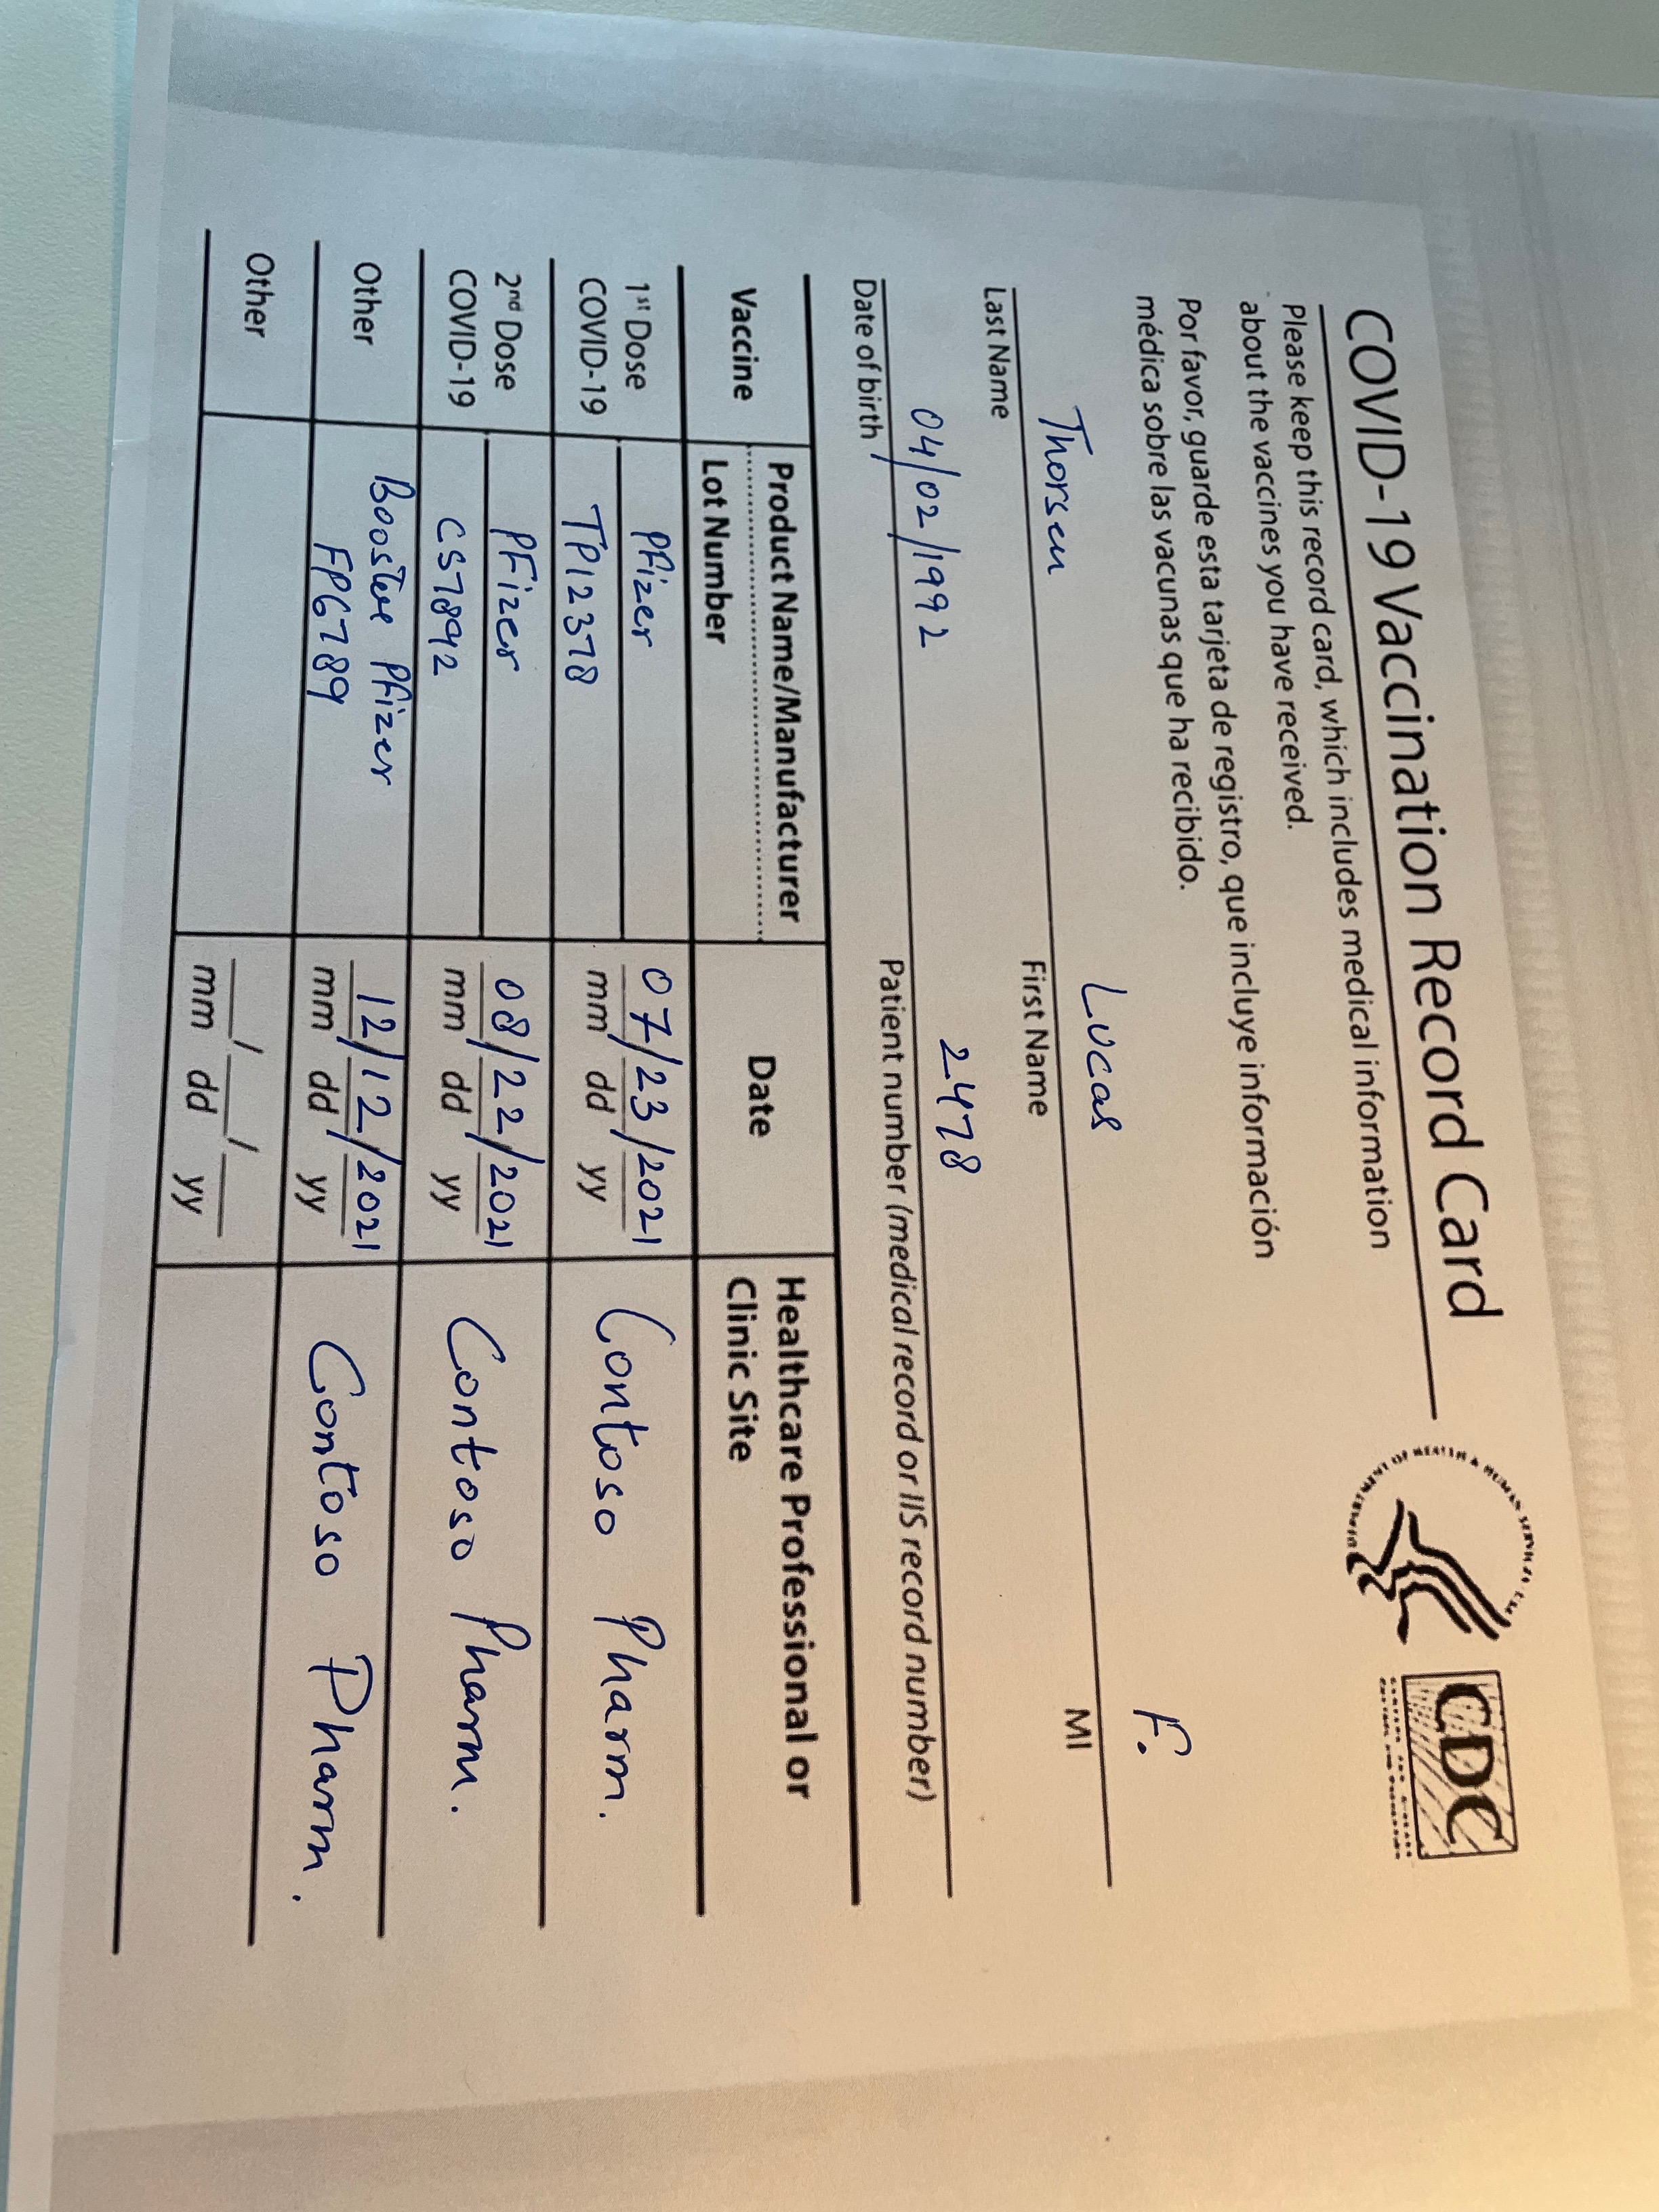 COVID-19 Vaccination Record Card
Please keep this record card, which includes medical information
about the vaccines you have received.
Por favor, guarde esta tarjeta de registro, que incluye información
médica sobre las vacunas que ha recibido.
DEPARTMENT OF HEALTH & HUMAN SERVICES USA
CDC
CENTERS FOR DISEASE
CONTROL AND PREVENTION
Thorsen Lucas F.
Last Name First Name MI
04/02/1992 2478
Date of birth Patient number (medical record or IIS record number)
Vaccine
Product Name/Manufacturer
Lot Number
Date
Healthcare Professional or
Clinic Site
1st Dose
COVID-19
Pfizer
TP12378
07/23/2021
mm dd yy
Contoso Pharm.
2nd Dose
COVID-19
PFizer
CS7892
08/22/2021
mm dd yy
Contoso Pharm.
Other
Booster Pfizer
FP6789
12/12/2021
mm dd yy
Contoso Pharm.
Other
___/___/___
mm dd yy